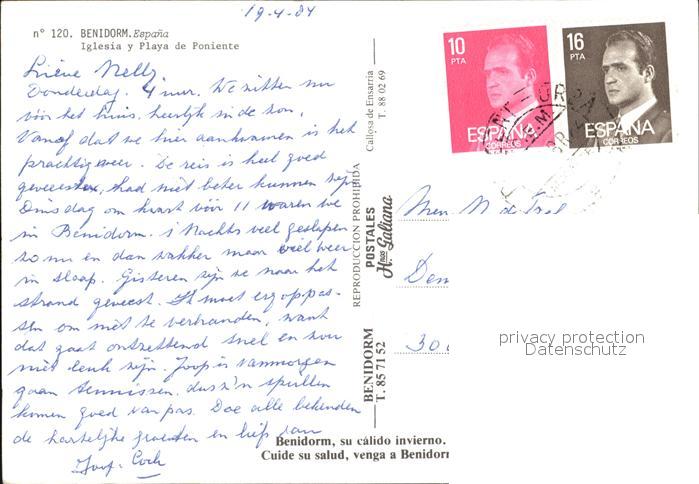 19-4-84
nº 120. BENIDORM. España
Iglesia y Playa de Poniente
Lieve Nelly,
Donderdag. 4 uur. We zitten nu
vóór het huis, heerlijk in de zon,
Vanaf dat we hier aankwamen is het
prachtig weer. De reis is heel goed
geweest, had niet beter kunnen zijn
Dinsdag om kwart vóór 11 waren we
in Benidorm. 's Nachts veel geslapen
zo nu en dan wakker maar wéér
in slaap. Gisteren zijn we naar het
strand geweest. Ik moet erg oppas-
sen om niet te verbranden, want
dat gaat ontzettend snel en zou
niet leuk zijn. Joop is vanmorgen
gaan tennissen, dus z'n spullen
komen goed van pas. Doe alle bekenden
de hartelijke groeten en liefs van
Joop. Cock
Callosa de Ensarria
T. 88 02 69
REPRODUCCION PROHIBIDA
POSTALES
Hnos Galiana
BENIDORM
T. 85 71 52
10
PTA
ESPAÑA
CORREOS
16
PTA
ESPAÑA
CORREOS
Den
privacy protection
Datenschutz
Benidorm, su cálido invierno.
Cuide su salud, venga a Benidorm